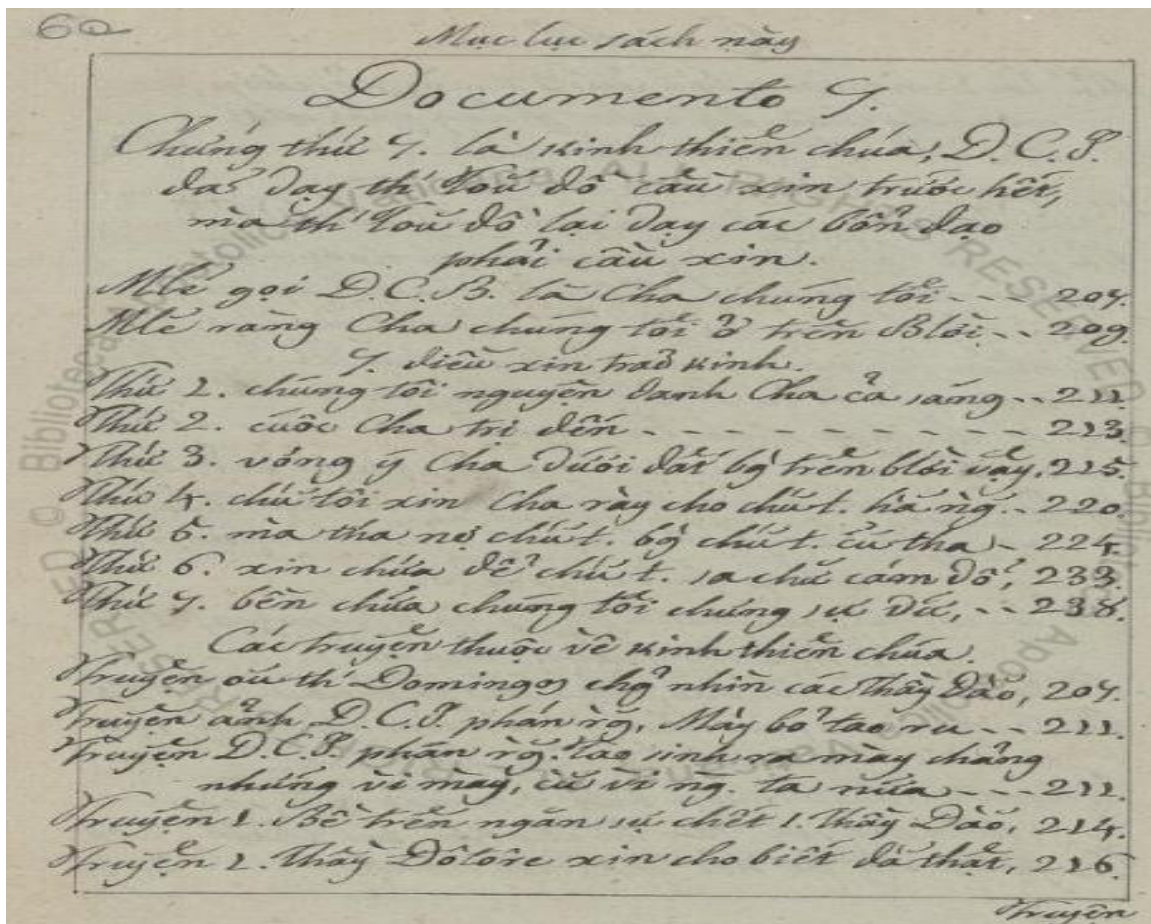 60
Mục lục sách này
Documento 7.
Chứng thứ 7. là kinh thiên chúa, D. C. J.
đã dạy th᷄ Toũ đồ cầu xin trước hết,
mà th᷄ Toũ đồ lại dạy các bổn đạo
phải cầu xin.
Mlẽ gọi D. C. B. là Cha chúng tôi --- 207.
Mlẽ ràng Cha chúng tôi ở trên Blời -- 209
7. điều xin trão kinh.
Thứ 1. chúng tôi nguyện danh Cha cả sáng -- 211.
Thứ 2. cuôc Cha trị đến - - - - - - - - - 213.
Thứ 3. vông ý Cha dưới đất bg̀ trên blời vậy. 215.
Thứ 4. chú tôi xin Cha rày cho chú t. hằng -- 220.
Thứ 5. mà tha nợ chú t. bg̀ chú t. cũ tha - 224.
Thứ 6. xin chứa để chú t. sa chữ cám dỗ, 233.
Thứ 7. bèn chữa chúng tôi chưng sự dữ, -- 238.
Các truyện thuộc về kinh thiên chúa.
Truyện oũ th᷄ Domingos chg̉ nhìn các Thầy Dào, 207.
Truyện ảnh D. C. J. phán rg̀, Mày bỏ tao ru -- 211.
Truyện D. C. J. phán rg̀. tao sinh ra mày chẳng
những vì mày, cũ vì ng. ta nữa --- 211.
Truyện 1. Bề trên ngăn sự chết 1. Thầy Dào, 214.
Truyện 1. Thầy Dôtôre xin cho biết đã thật, 216.
Truyện